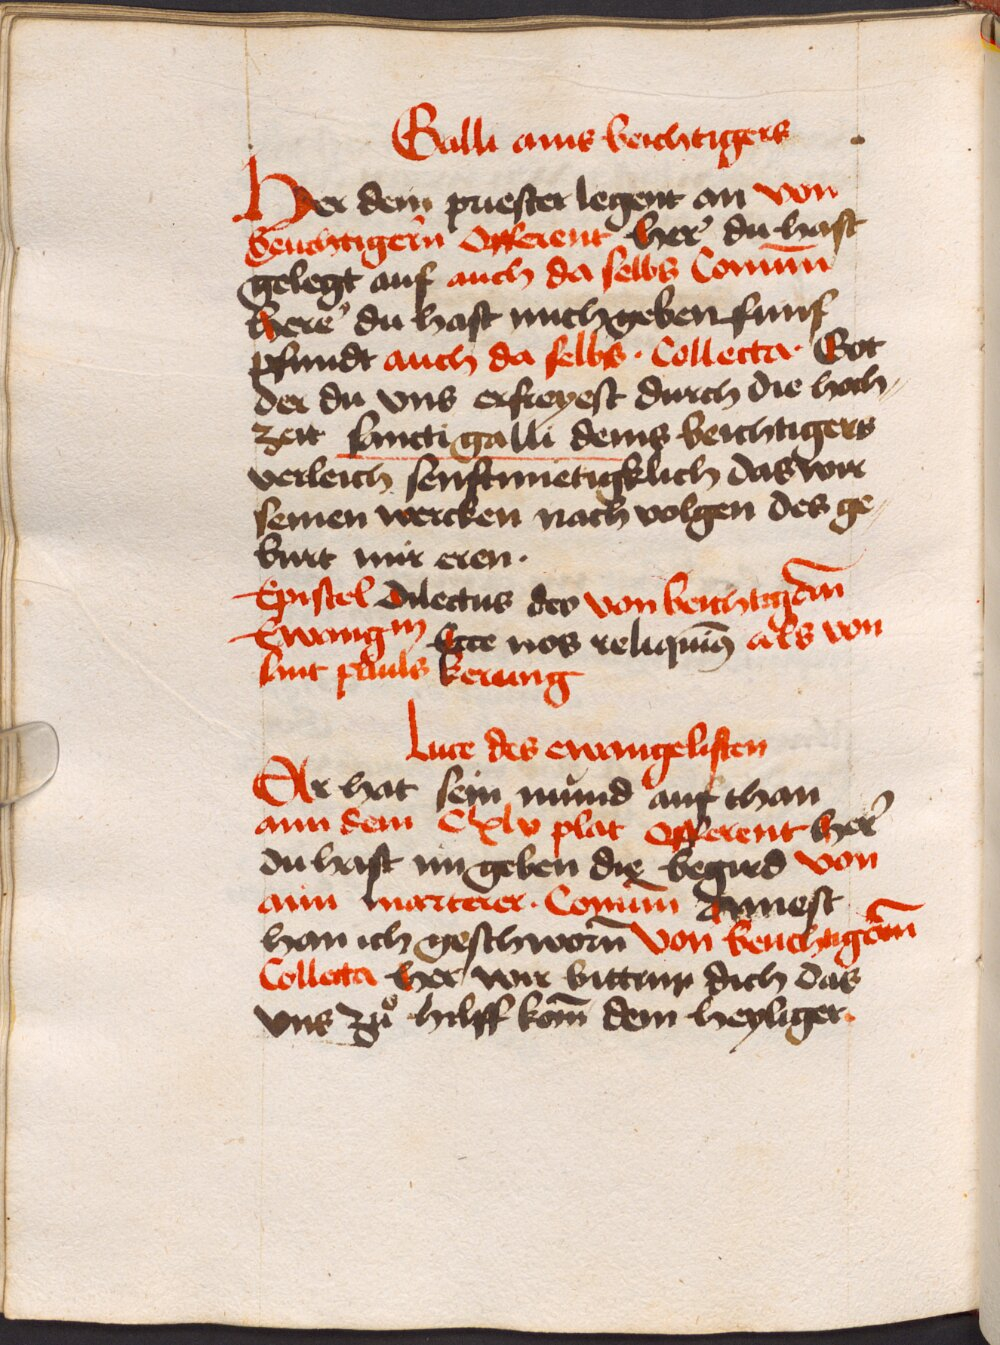 Galli ains beichtigers
Her dein priester legent an von
beichtigern Offerent her du hast
gelegt auf auch da selbs Comūm
here du hast mich geben funf
pfundt auch da selbs · Collecta · Got
der du vns erfreyest durch die hoch
zeit sancti galli deins beichtigers
verleich senftmietigklich das wir
seinen wercken nach volgen des ge
burt mir eren ·
Epistel Dilectus deo von beichtigern
Ewangm Ecce nos reliquim9 als von
sant pauls kerung
Luce des ewangelisten
Er hat sein mund auf than
ann dem Cxlv plat Offerent her
du hast im geben die begird von
aim marterer · Comūm Ainnest
han ich geschworn von beichtigern
Collecta her wir bittnn dich das
vns zů hilff kom̄ dein heyliger ·